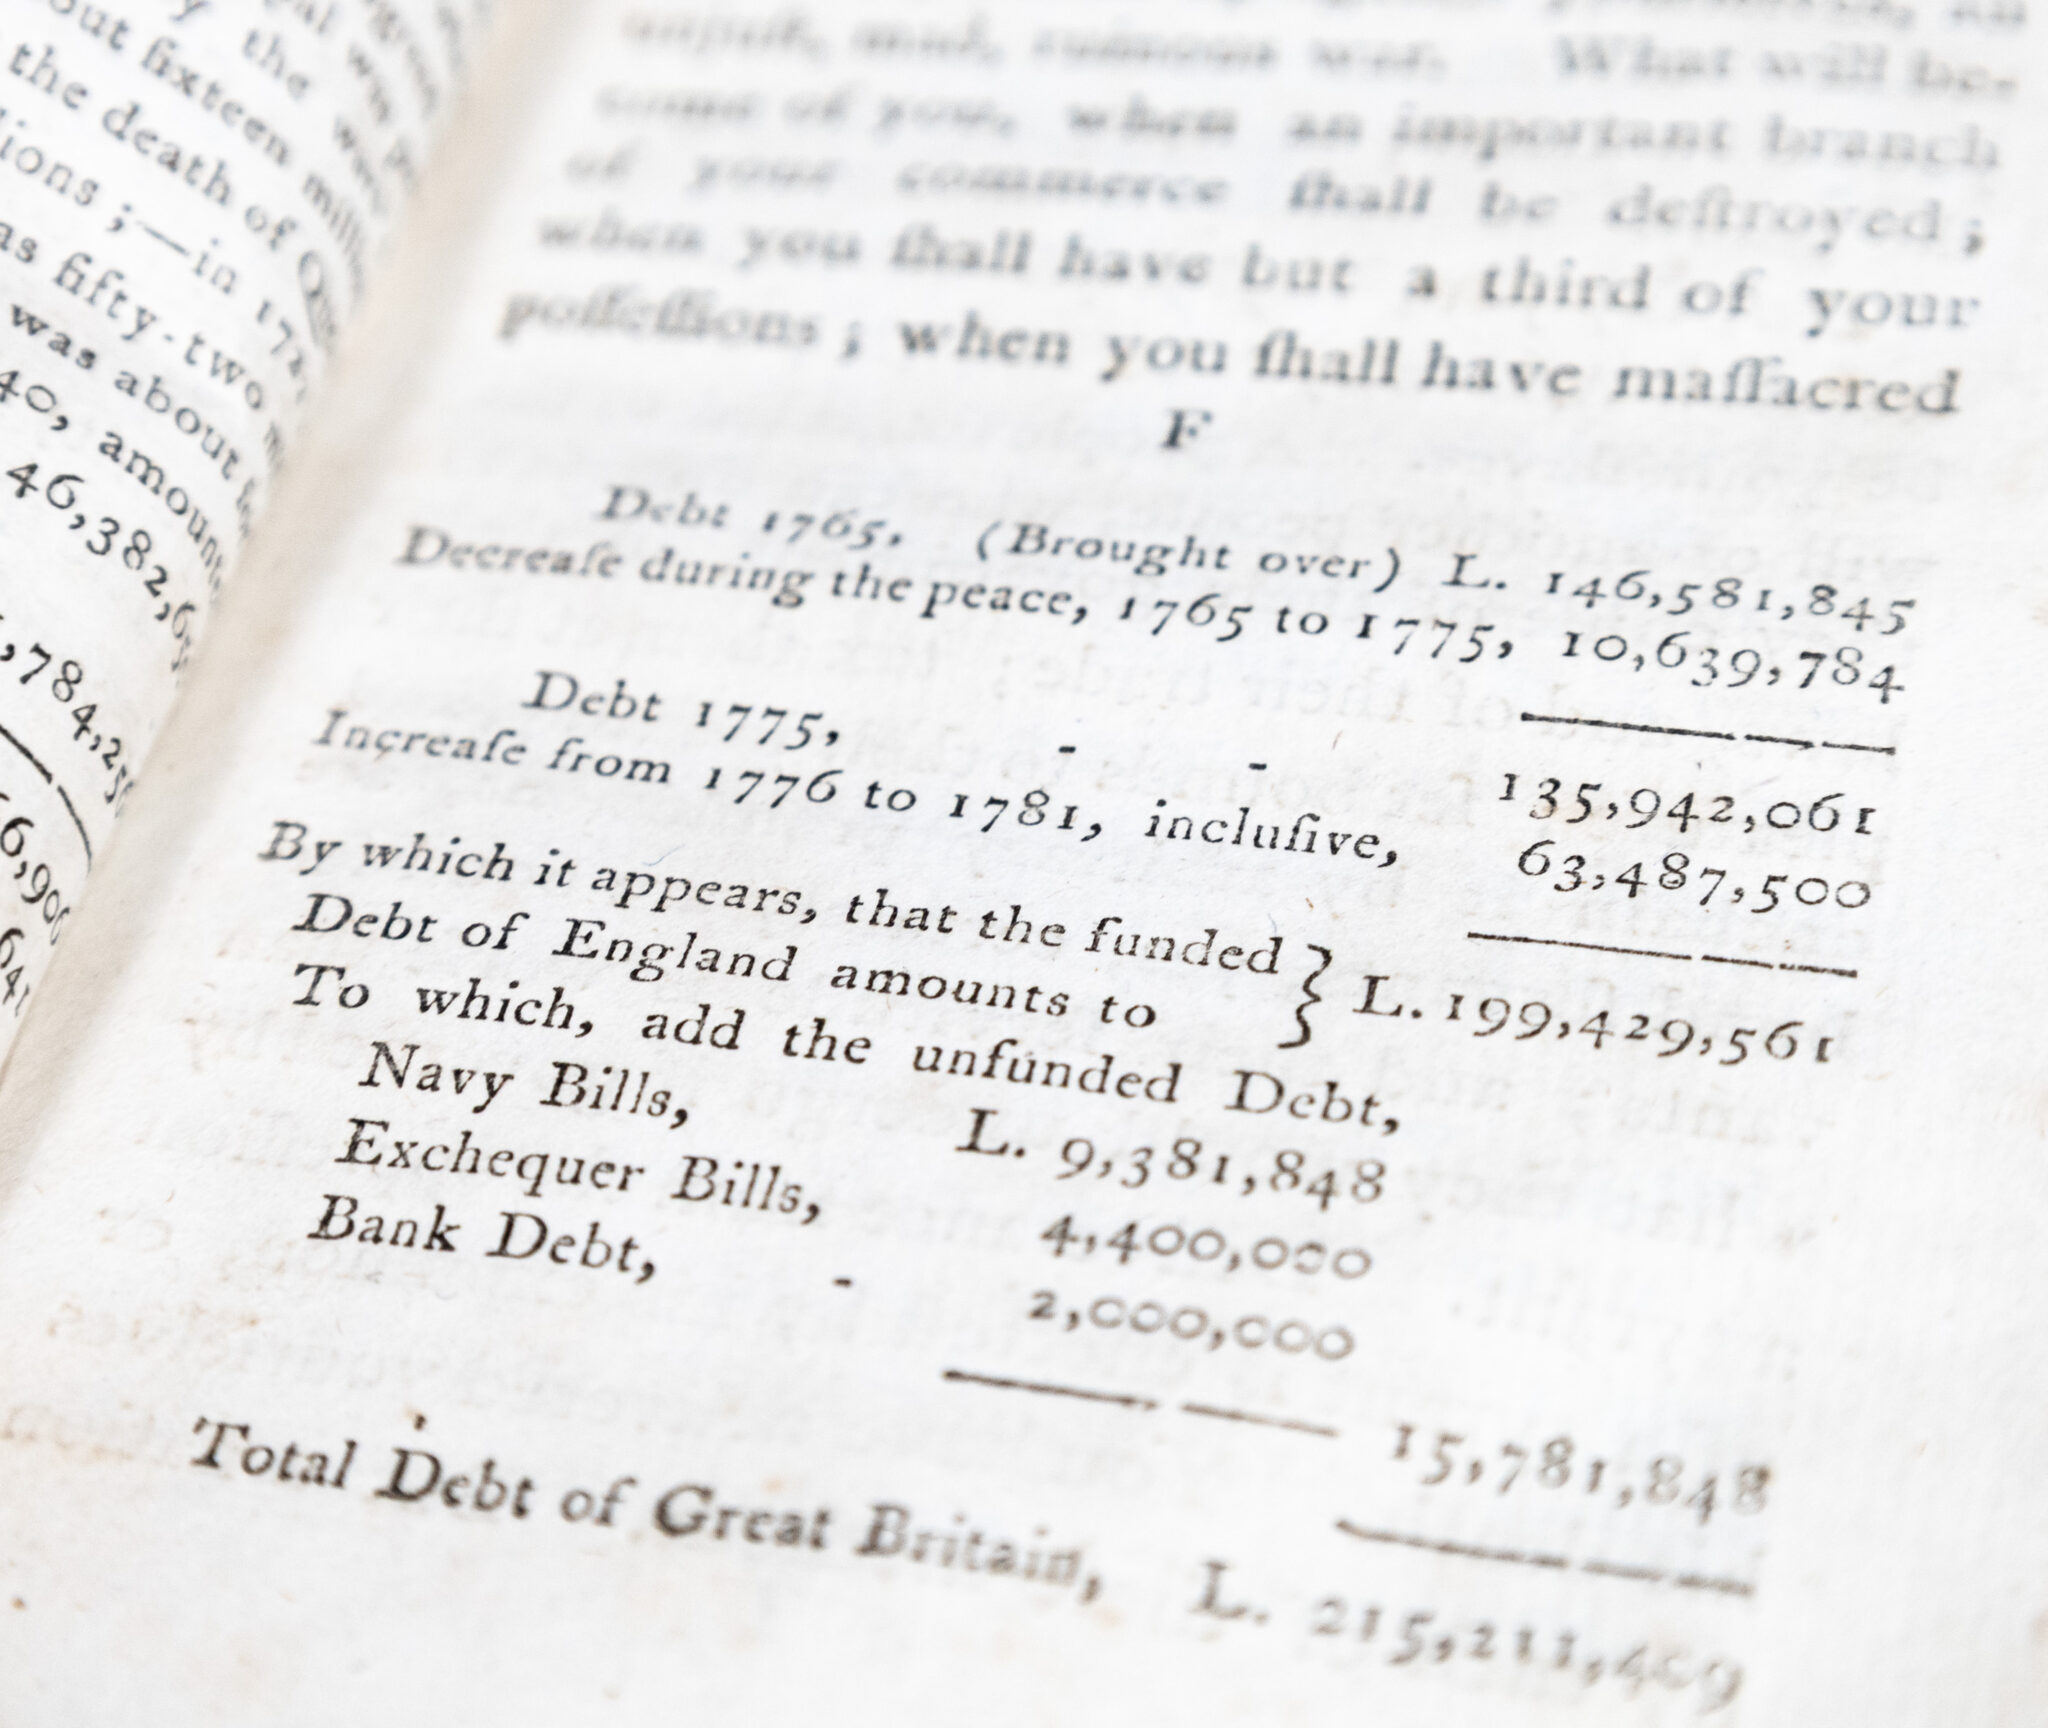 out sixteen mill
the death of Qu
lions ;—in 17
as fifty-two m
was about
40, amount
46,382,6
,784,25
6,900
641
unjuſt, mad, ruinous war. What will be-
come of you, when an important branch
of your commerce ſhall be deſtroyed;
when you ſhall have but a third of your
poſſeſſions; when you ſhall have maſſacred
F
Debt 1765, (Brought over) L. 146,581,845
Decreaſe during the peace, 1765 to 1775, 10,639,784
Debt 1775, - - 135,942,061
Increaſe from 1776 to 1781, incluſive, 63,487,500
By which it appears, that the funded
Debt of England amounts to } L. 199,429,561
To which, add the unfunded Debt,
Navy Bills, L. 9,381,848
Exchequer Bills, 4,400,000
Bank Debt, - 2,000,000
15,781,848
Total Debt of Great Britain, L. 215,211,409